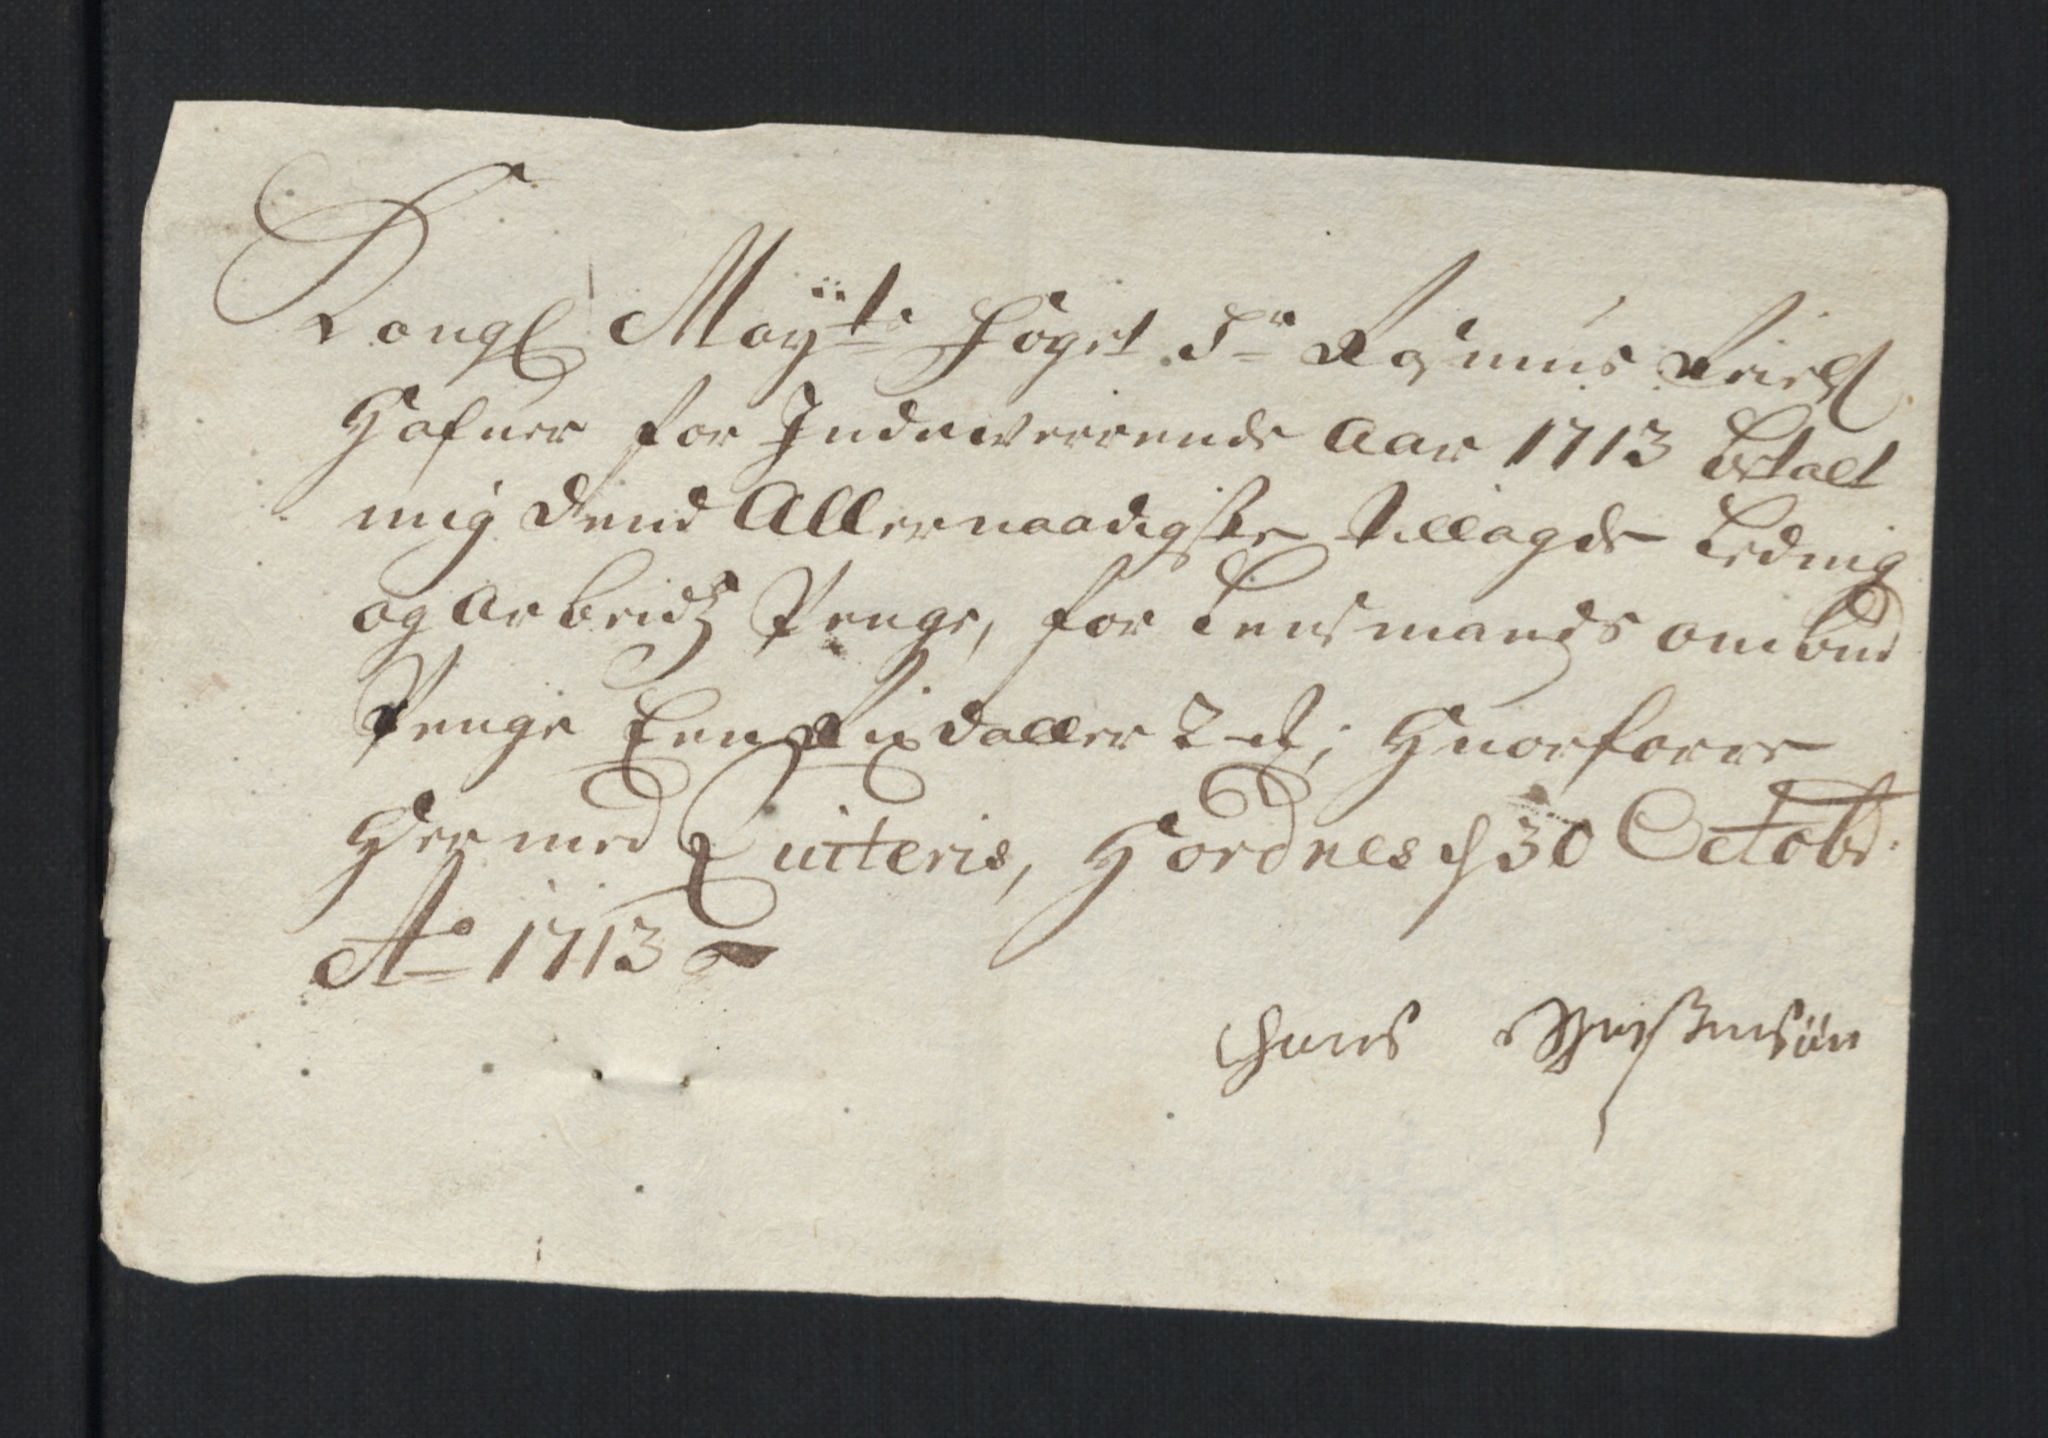 Kongl Mayts Foget Sr Rasmus
Hafuer for Indeverende Aar 1713 betalt
mig dend Allernaadigste tillagde Leding
og Arbeids Penge, for Lensmands ombud
Penge Een Rixdaller 2 ; Huorforre
Hermed Quiteris, Hordnes d 30 Octobr:
Ao 1713